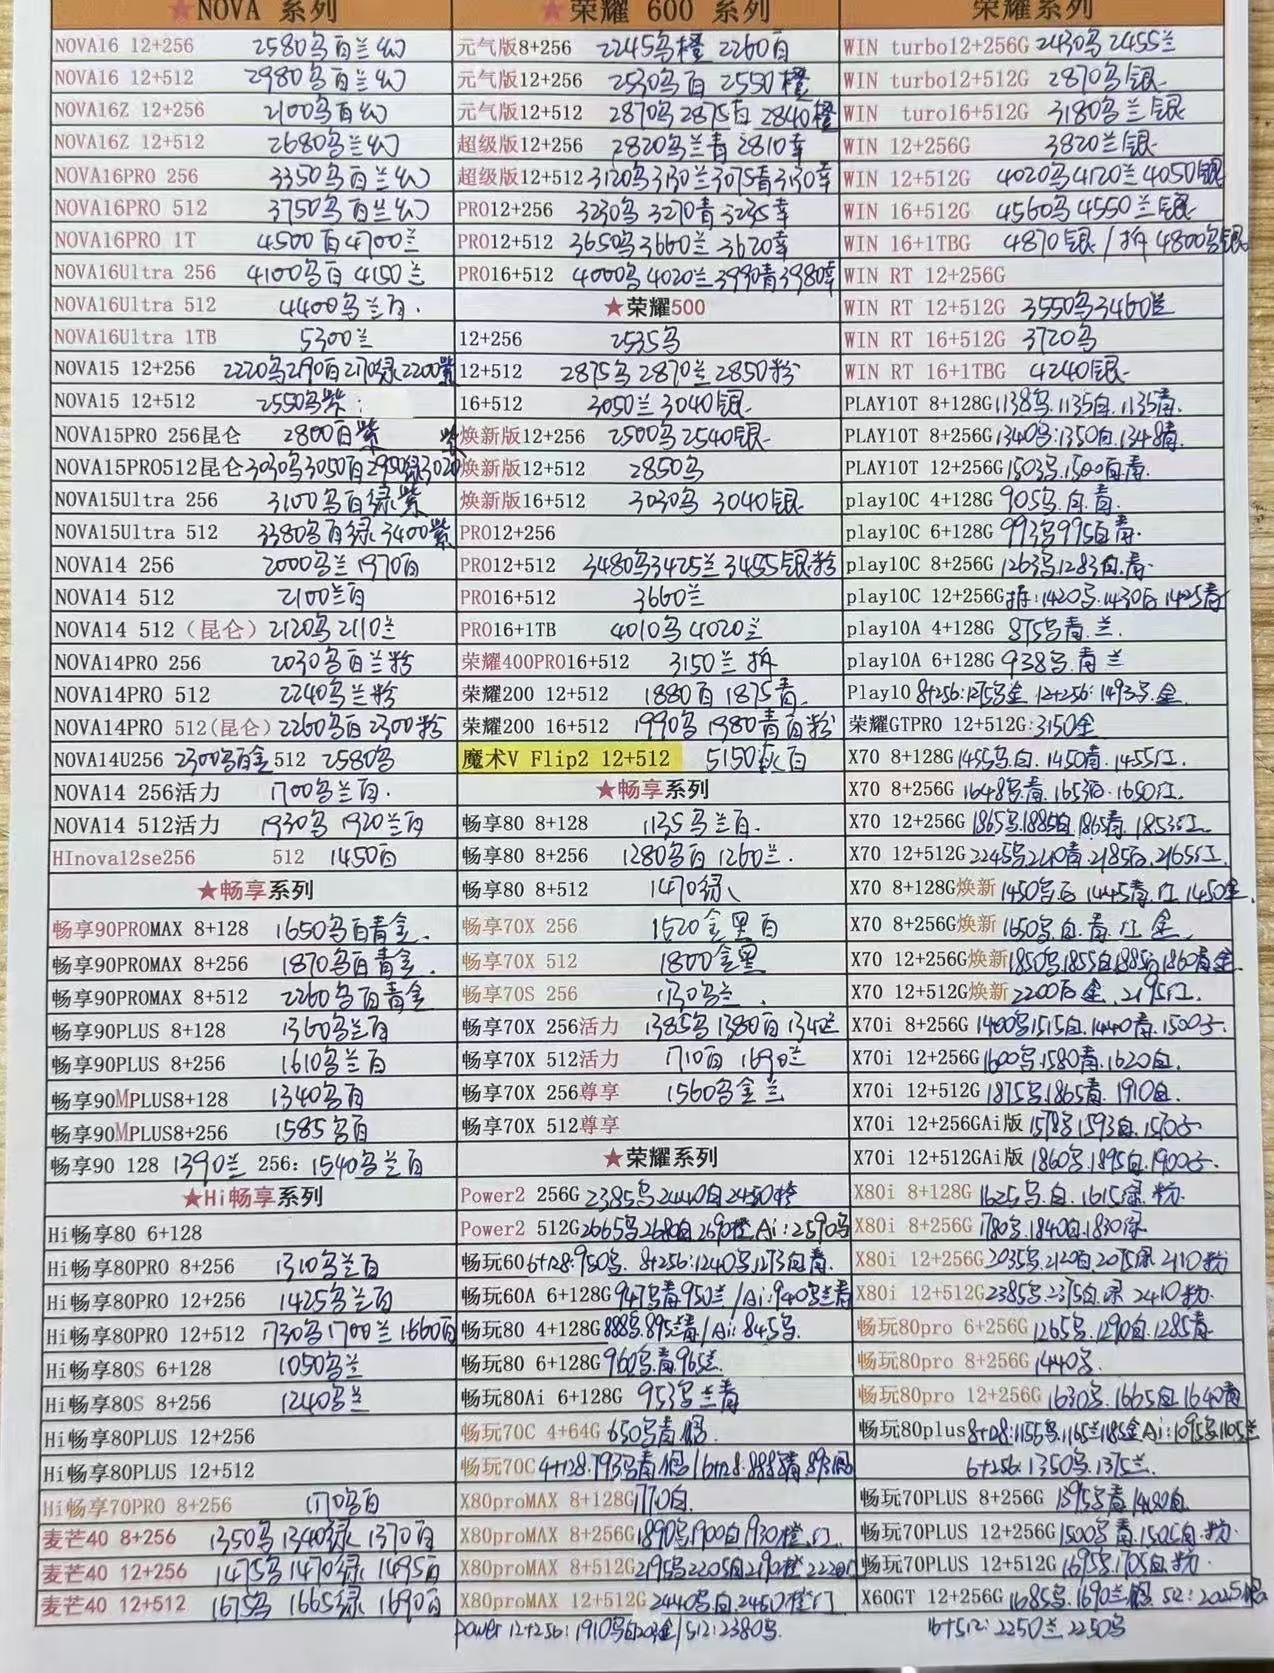 ★NOVA 系列
NOVA16 12+256 2580乌百兰幻
NOVA16 12+512 2980乌百兰幻
NOVA16Z 12+256 2100乌百幻
NOVA16Z 12+512 2680乌兰幻
NOVA16PRO 256 3350乌百兰幻
NOVA16PRO 512 3750乌百兰幻
NOVA16PRO 1T 4500百4700兰
NOVA16Ultra 256 4100乌百 4150兰
NOVA16Ultra 512 4400乌兰百.
NOVA16Ultra 1TB 5300兰
NOVA15 12+256 2220乌2190百2170绿2200紫
NOVA15 12+512 2550乌紫
NOVA15PRO 256昆仑 2800百紫
NOVA15PRO512昆仑3030乌3050百2950绿3020紫
NOVA15Ultra 256 3100乌百绿紫
NOVA15Ultra 512 3380乌百绿3400紫
NOVA14 256 2000乌兰1970百
NOVA14 512 2100兰百
NOVA14 512（昆仑）2120乌2110兰
NOVA14PRO 256 2030乌百兰粉
NOVA14PRO 512 2240乌兰粉
NOVA14PRO 512(昆仑)2260乌百2300粉
NOVA14U256 2300乌百金 512 2580乌
NOVA14 256活力 1700乌兰百.
NOVA14 512活力 1930乌 1920兰百
HInova12se256 512 1450百
★畅享系列
畅享90PROMAX 8+128 1650乌百青金.
畅享90PROMAX 8+256 1870乌百青金.
畅享90PROMAX 8+512 2260乌百青金
畅享90PLUS 8+128 1360乌兰百
畅享90PLUS 8+256 1610乌兰百
畅享90MPLUS8+128 1340乌百
畅享90MPLUS8+256 1585乌百
畅享90 128 1390兰 256: 1540乌兰百
★Hi畅享系列
Hi畅享80 6+128
Hi畅享80PRO 8+256 1310乌兰百
Hi畅享80PRO 12+256 1425乌兰百
Hi畅享80PRO 12+512 1730乌1700兰1660百
Hi畅享80S 6+128 1050乌兰
Hi畅享80S 8+256 1240乌兰
Hi畅享80PLUS 12+256
Hi畅享80PLUS 12+512
Hi畅享70PRO 8+256 1170乌百
麦芒40 8+256 1350乌1340绿1370百
麦芒40 12+256 1475乌1470绿1495百
麦芒40 12+512 1675乌 1665绿 1690百
★荣耀 600 系列
元气版8+256 2245乌橙 2260百
元气版12+256 2530乌百 2550橙
元气版12+512 2870乌2875百2840橙
超级版12+256 2820乌兰青2810幸
超级版12+512 3120乌3130兰3075青3130幸
PRO12+256 3230乌 3270青3235幸
PRO12+512 3650乌3660兰3620幸
PRO16+512 4000乌4020兰3990青3980幸
★荣耀500
12+256 2535乌
12+512 2875乌2870兰2850粉
16+512 3050兰3040银.
焕新版12+256 2500乌2540银.
焕新版12+512 2850乌
焕新版16+512 3030乌 3040银
PRO12+256
PRO12+512 3480乌3425兰3455银粉
PRO16+512 3660兰
PRO16+1TB 4010乌4020兰
荣耀400PRO16+512 3150兰 拆
荣耀200 12+512 1880百1875青.
荣耀200 16+512 1990乌1980青百粉
魔术V Flip2 12+512 5150 百
★畅享系列
畅享80 8+128 1135乌兰百.
畅享80 8+256 1280乌百1260兰.
畅享80 8+512 1470绿
畅享70X 256 1520金黑百
畅享70X 512 1800金黑
畅享70S 256 1130乌兰
畅享70X 256活力 1385乌1380百1340兰
畅享70X 512活力 1710百 1690兰
畅享70X 256尊享 1560乌金兰
畅享70X 512尊享
★荣耀系列
Power2 256G 2385乌2440白2450橙
Power2 512G2665乌2680白2690橙Ai:2590乌
畅玩60 6+128:950乌. 8+256:1240乌.1273白青.
畅玩60A 6+128G947乌青950兰/Ai:940乌兰青
畅玩80 4+128G 888乌.895兰青/Ai:845乌.
畅玩80 6+128G960乌.青965兰.
畅玩80Ai 6+128G 953乌兰青
畅玩70C 4+64G 650乌青
畅玩70C 4+128:793乌青
X80proMAX 8+128G1770白.
X80proMAX 8+256G1890乌1900白1930橙.
X80proMAX 8+512G2195乌2205白2190橙
X80proMAX 12+512G2440乌.白.2450橙
power 12+256:1910乌白 金/512:2380乌.
荣耀系列
WIN turbo12+256G2430乌2455兰
WIN turbo12+512G 2870乌银.
WIN turo16+512G 3180乌兰银
WIN 12+256G 3820兰银.
WIN 12+512G 4020乌4120兰4050银
WIN 16+512G 4560乌4550兰银
WIN 16+1TBG 4870银/拆4800乌银
WIN RT 12+256G
WIN RT 12+512G 3550乌3460兰
WIN RT 16+512G 3720乌
WIN RT 16+1TBG 4240银.
PLAY10T 8+128G1138乌.1135白.1135青.
PLAY10T 8+256G1340乌.1350白.1348青.
PLAY10T 12+256G1503乌.1500白青.
play10C 4+128G 905乌.白.青.
play10C 6+128G 993乌995白青.
play10C 8+256G 1263乌.1283白.青.
play10C 12+256G拆:1420乌.1430白1425青
play10A 4+128G 875乌青.兰.
play10A 6+128G 938乌.青兰
Play10 8+256:1275乌金 12+256:1493乌.金.
荣耀GTPRO 12+512G:3150金
X70 8+128G1455乌.白.1450青.1455红.
X70 8+256G 1648乌青.1653白.1650红.
X70 12+256G 1865乌.1885白1865青.1853红.
X70 12+512G2245乌2240青.2185白.2165红.
X70 8+128G焕新1450乌.白1445青.红.1450金.
X70 8+256G焕新1650乌.白.青.红 金.
X70 12+256G焕新1850乌.1855白1885 1860青金.
X70 12+512G焕新2200白金.2195红.
X70i 8+256G 1400乌1515白.1440青.1500
X70i 12+256G1600乌.1580青.1620白.
X70i 12+512G 1875乌.1865青.1910白.
X70i 12+256GAi版 1578乌.1593白.1570
X70i 12+512GAi版 1860乌.1895白.1900
X80i 8+128G 1625乌.白.1615绿.粉.
X80i 8+256G 1780乌.1840白.1830绿
X80i 12+256G2035乌.2120白.2075绿2110粉
X80i 12+512G2385乌.2375白.绿2410粉.
畅玩80pro 6+256G1265乌.1290白.1285青
畅玩80pro 8+256G1440乌.
畅玩80pro 12+256G1630乌.1665白1640青
畅玩80plus8+128:1155乌.1165兰1185金Ai:1095乌1105兰
6+256:1350乌.1375兰.
畅玩70PLUS 8+256G 1395乌青1480白
畅玩70PLUS 12+256G1500乌青.1505白.粉.
畅玩70PLUS 12+512G1695乌1705白.粉.
X60GT 12+256G1685乌.1690兰 512:2025
16+512:2250兰2250乌